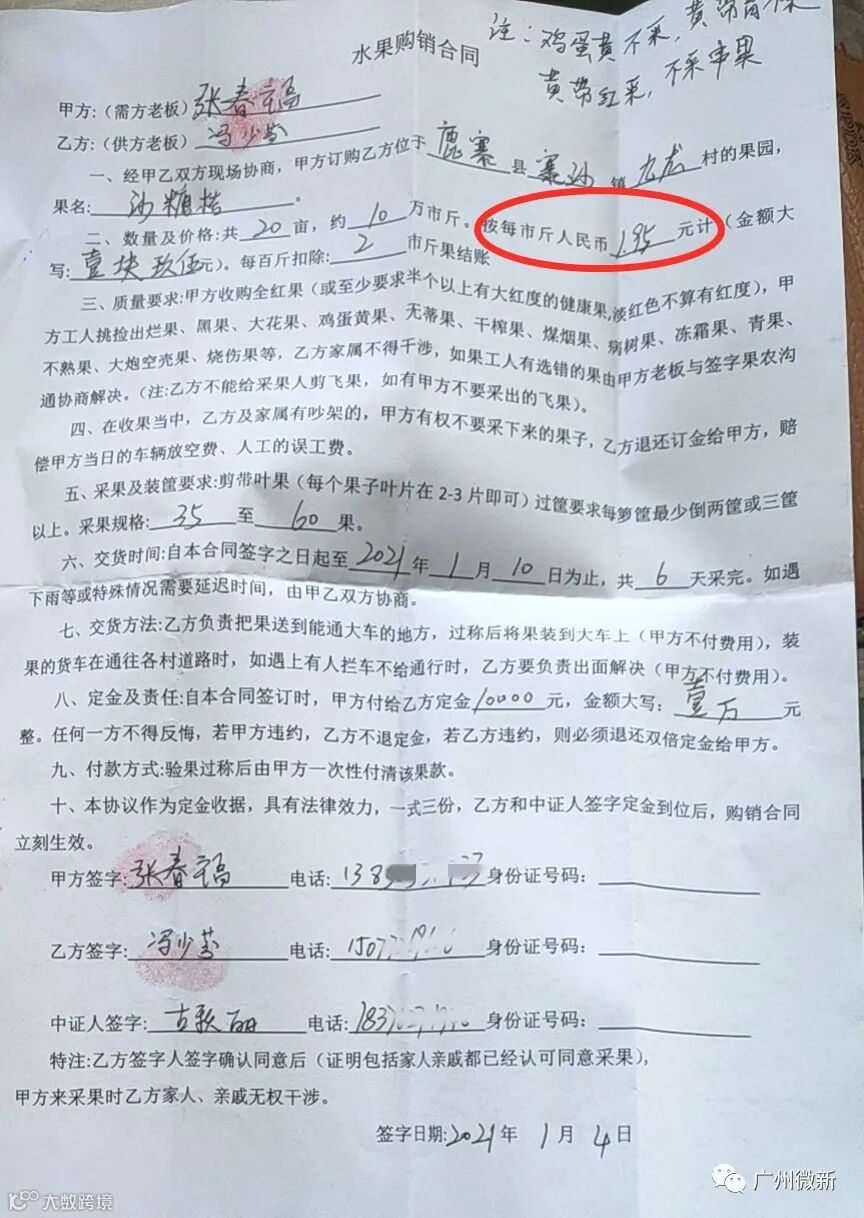 水果购销合同
注:鸡蛋黄不采,黄带青不采
黄带红采,不采串果
甲方:(需方老板)张春福
乙方:(供方老板)冯少芬
一、经甲乙双方现场协商,甲方订购乙方位于鹿寨县寨沙镇九龙村的果园,
果名:沙糖桔。
二、数量及价格:共20亩,约10万市斤。按每市斤人民币1.95元计(金额大
写:壹块玖伍元)。每百斤扣除:2市斤果结账
三、质量要求:甲方收购全红果(或至少要求半个以上有大红度的健康果,淡红色不算有红度),甲
方工人挑捡出烂果、黑果、大花果、鸡蛋黄果、无蒂果、干榨果、煤烟果、病树果、冻霜果、青果、
不熟果、大炮空壳果、烧伤果等,乙方家属不得干涉,如果工人有选错的果由甲方老板与签字果农沟
通协商解决。(注:乙方不能给采果人剪飞果,如有甲方不要采出的飞果)。
四、在收果当中,乙方及家属有吵架的,甲方有权不要采下来的果子,乙方退还订金给甲方,赔
偿甲方当日的车辆放空费、人工的误工费。
五、采果及装筐要求:剪带叶果(每个果子叶片在2-3片即可)过筐要求每箩筐最少倒两筐或三筐
以上。采果规格:35至60果。
六、交货时间:自本合同签字之日起至2021年1月10日为止,共6天采完。如遇
下雨等或特殊情况需要延迟时间,由甲乙双方协商。
七、交货方法:乙方负责把果送到能通大车的地方,过称后将果装到大车上(甲方不付费用),装
果的货车在通往各村道路时,如遇上有人拦车不给通行时,乙方要负责出面解决(甲方不付费用)。
八、定金及责任:自本合同签订时,甲方付给乙方定金10000元,金额大写:壹万元
整。任何一方不得反悔,若甲方违约,乙方不退定金,若乙方违约,则必须退还双倍定金给甲方。
九、付款方式:验果过称后由甲方一次性付清该果款。
十、本协议作为定金收据,具有法律效力,一式三份,乙方和中证人签字定金到位后,购销合同
立刻生效。
甲方签字:张春福 电话:138 身份证号码:
乙方签字:冯少芬 电话:1507 身份证号码:
中证人签字:古秋丽 电话:183 身份证号码:
特注:乙方签字人签字确认同意后(证明包括家人亲戚都已经认可同意采果),
甲方来采果时乙方家人、亲戚无权干涉。
签字日期:2021年1月4日
广州微新
大数跨境